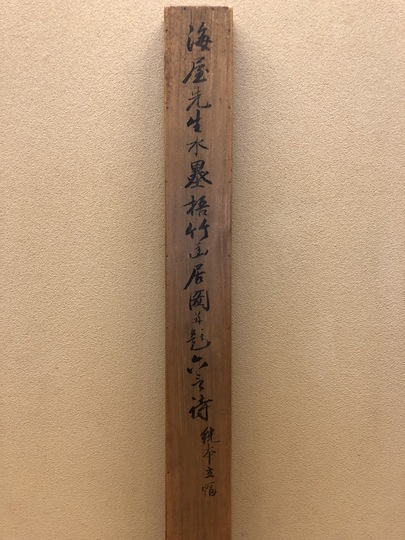 海屋先生水墨梧竹幽居圖并題六言詩
絖本立幅